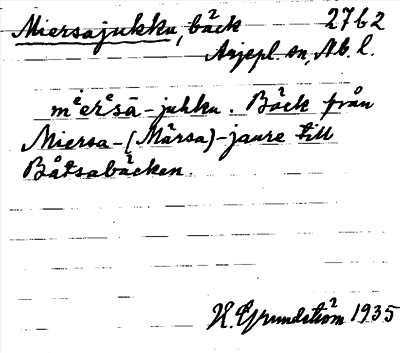 Miersajukku, bäck 2762
Arjepl. sn, Nb. l.
mᵉerᵉsā-jukku. Bäck från
Miersa-(Märsa)-jaure till
Båtsabäcken.
H. Grundström 1935